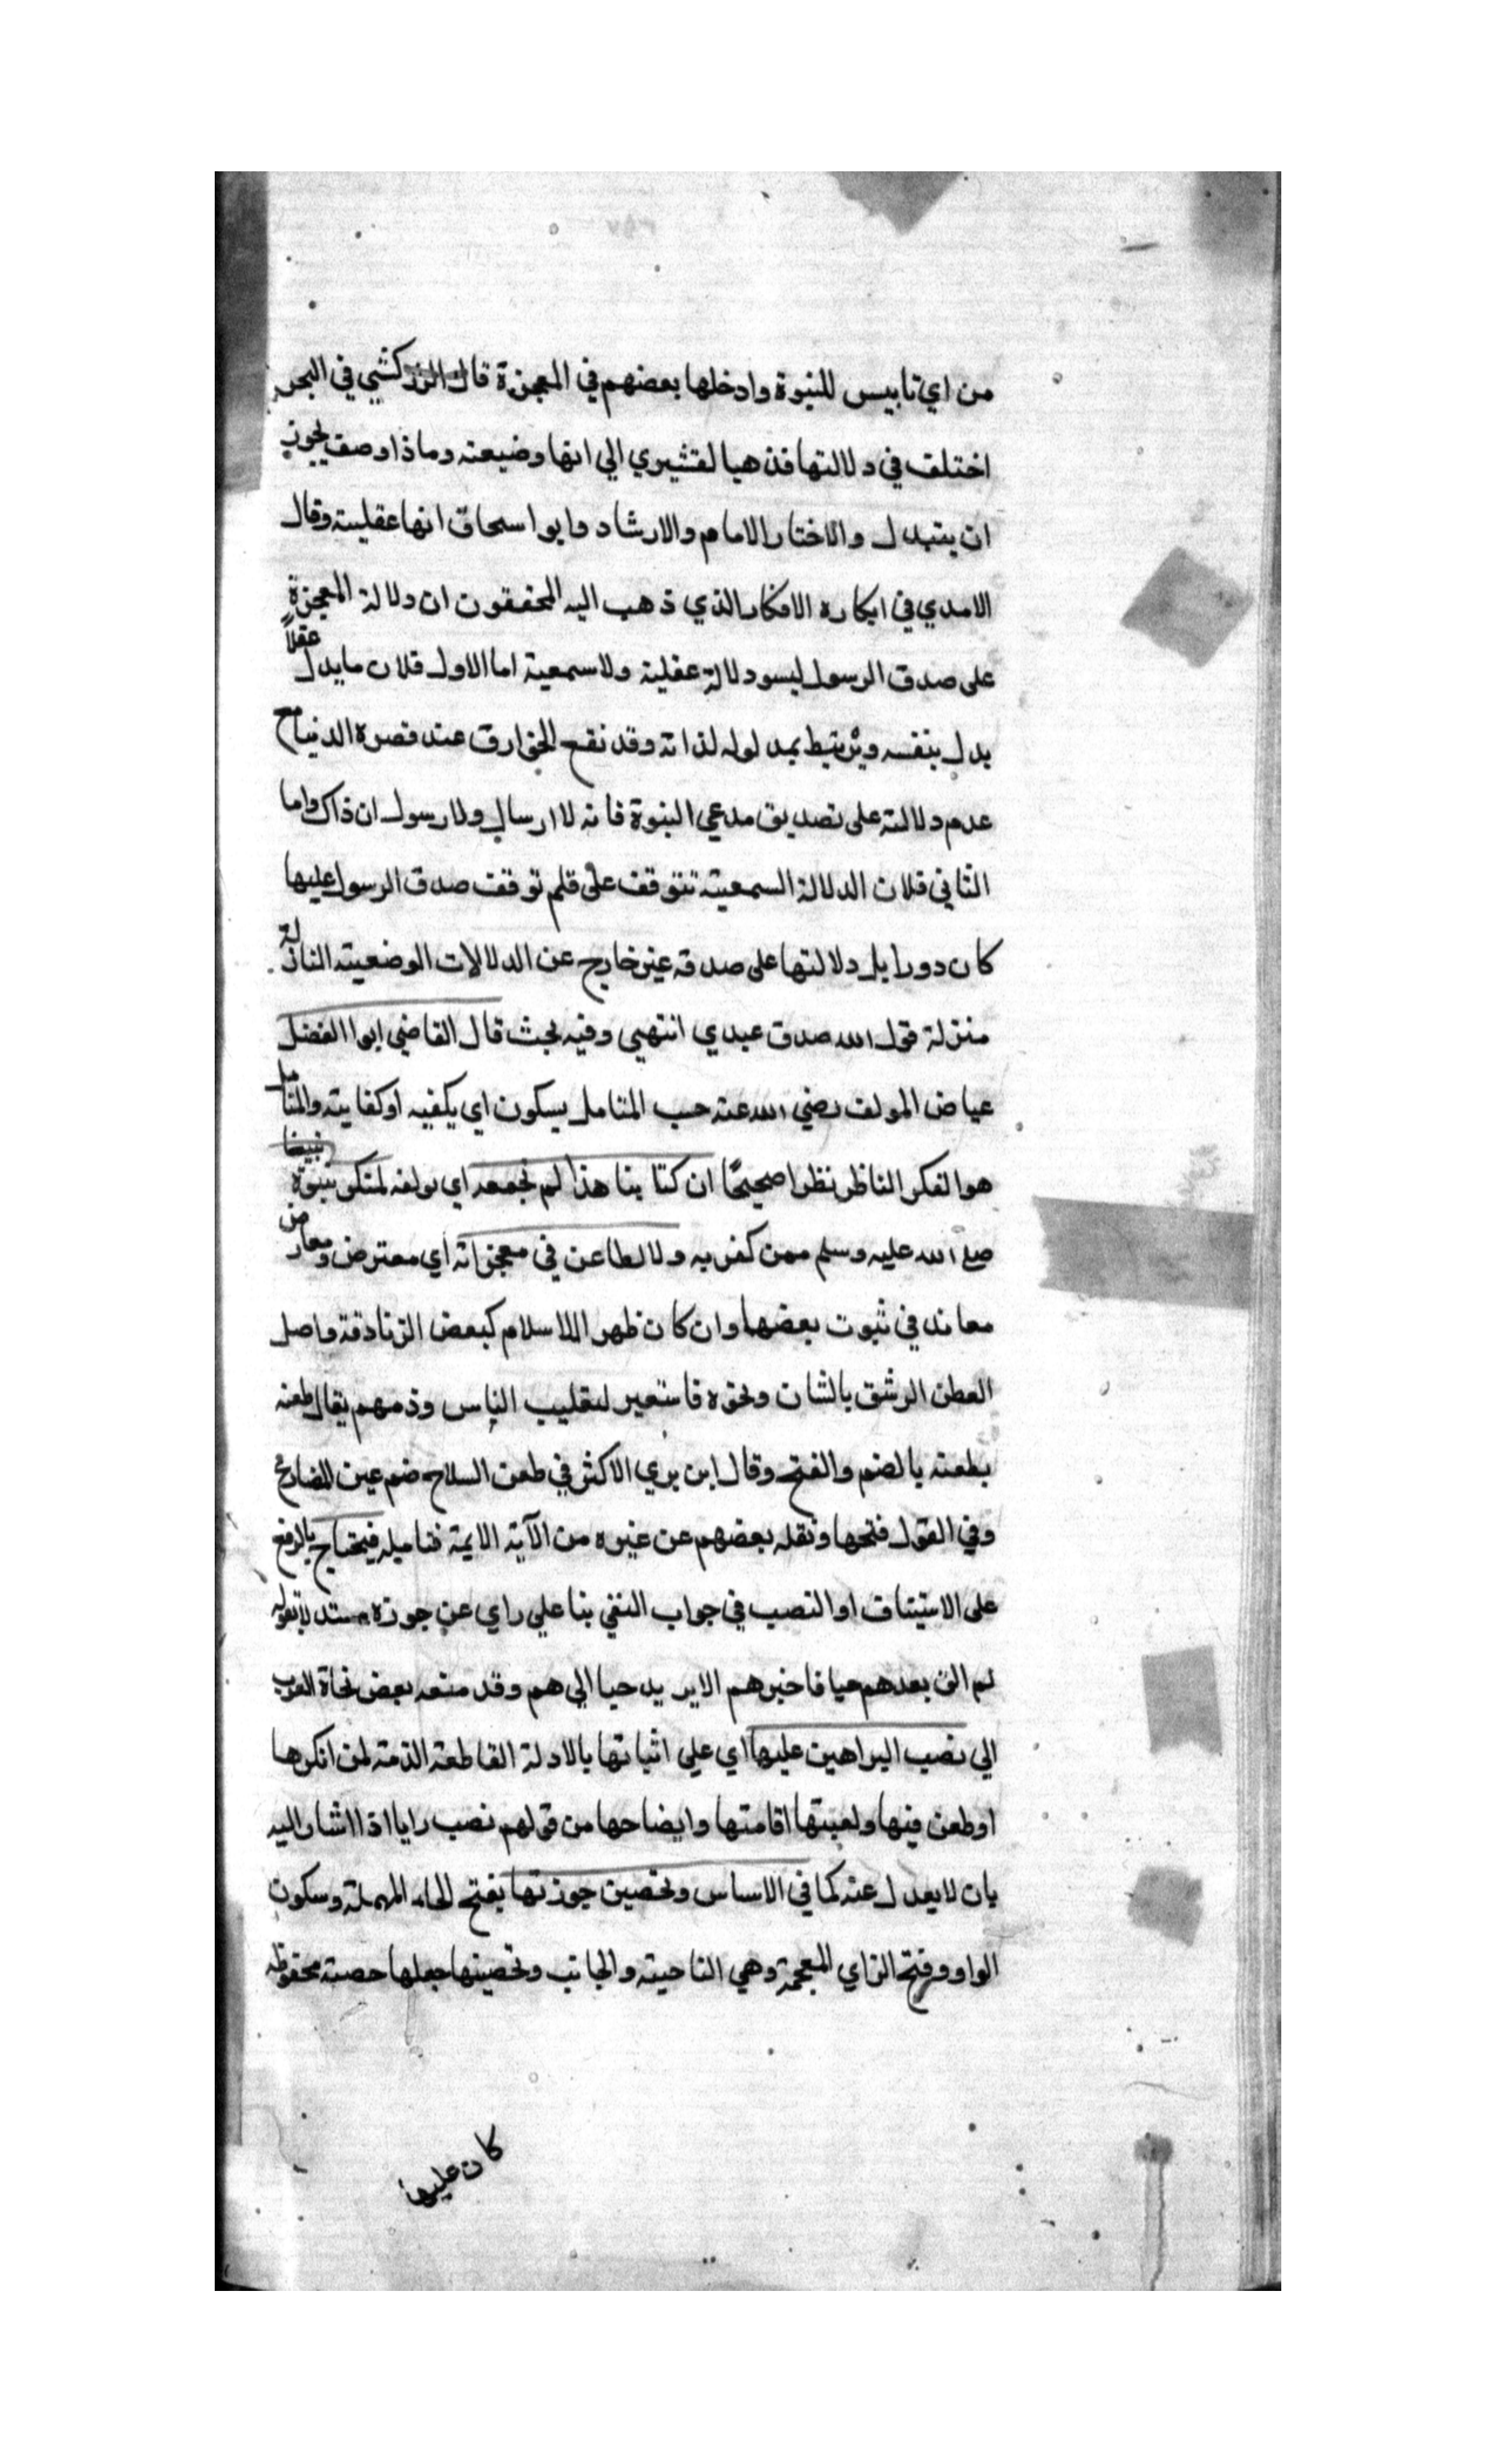 من اي تابيس للنبوة وادخلها بعضهم في المعجزة قال الزركشي في البحر
اختلف في دلالتها فذهبا لقشيري الي انها وضيعته وماذا وصف يجوز
ان يتبدل والاختار الامام والارشاد وابوا سحاق انها عقليته وقال
الامدي في ابكاره الافكار الذي ذهب اليه المحققون ان دلالة المعجزة
على صدق الرسول ليسود لالة عقلية ولا سمعية اما الاول فلان مايدل عقلاً
يدل بنفسه ويرتبط بمد لوله لذاته وقد نقع الخوارق عند قصره الدنيا مع
عدم دلالته على تصديق مدعي النبوة فانه لا ارسال ولا رسول ان ذاك واما
الثاني فلان الدلالة السمعيته تتوقف على قلم توقف صدق الرسول عليها
كان دورا بل دلالتها على صدقه غير خارج عن الدلالات الوضعيته النازلة
منزلة قول الله صدق عبدي انتهيى وفيه بحث قال القاضي ابوا الفضل
عياض المولف رضي الله عنه حسب المتامل بسكون اي يكفيه او كفايته والمتامل
هو الفكر الناظر نظرا صحيحًا ان كتابنا هذا لم نجمعه اي نولفه لمنكر نبوة نبينا
صلى الله عليه وسلم ممن كفر به ولا لطاعن في معجزاته اي معترض ومعارض
معاند في ثبوت بعضها وان كان ظهر الملا سلام كبعض الزنادقة واصل
العطن الرشق بالشان ونحوه فاستعير لتقليب الناس وذمهم يقال طعنه
بطعنه بالضم والفتح وقال ابن بري الاكثر في طعن السلاح ضم عين المضارع
وفي القول فتحها ونقله بعضهم عن غيره من الآية الايمة فتاميله فيحتاج بالرفع
على الاستيناف او النصب في جواب النفي بنا علي راي عن جوزه مستد لا بقوله
لم الق بعدهم حيا فاخبرهم الايزيد حبا الي هم وقد منعه بعض نحاة العرب
الي نصب البراهين عليها اي علي اثباتها بالادلة القاطعة الذمته لمن انكرها
او طعن فيها ولعبتها اقامتها وايضاحها من قولهم نصب رايا اذا اشار اليه
بان لا يعدل عنه كما في الاساس وتحصين حوزتها بفتح الحاء المهملة وسكون
الواو وفتح الزاي المعجمة وهي الناحيته والجانب وتحصينها جعلها حصنة محفوظه
كان عليها